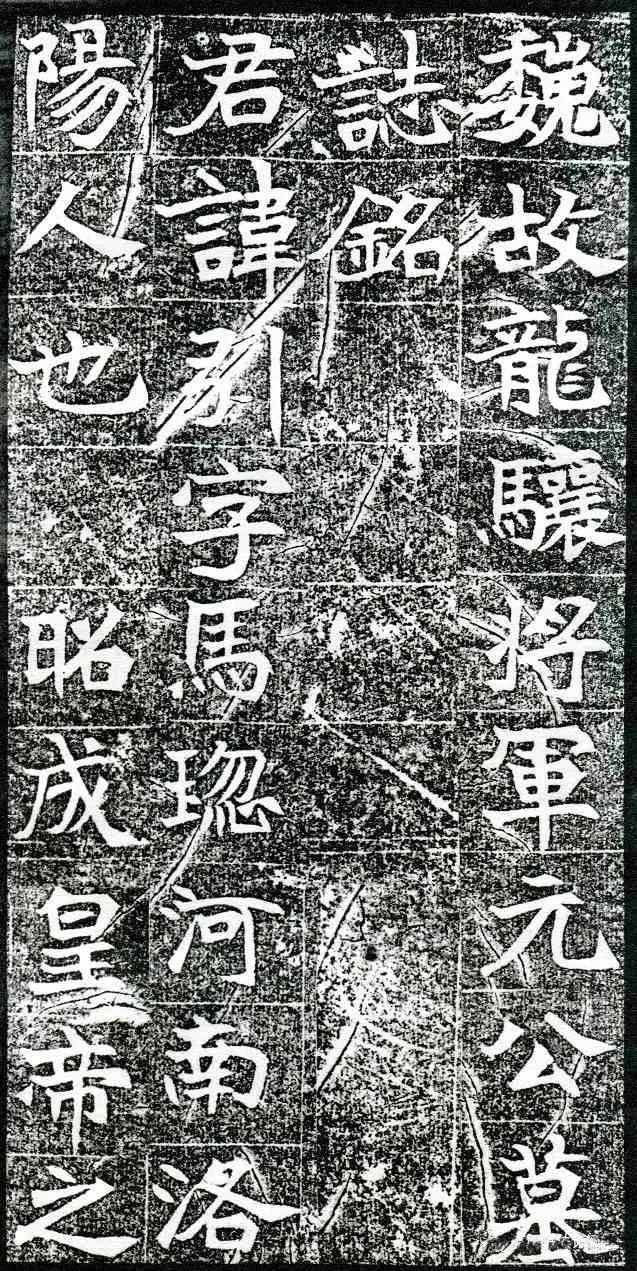 魏故龍驤将軍元公墓
誌銘
君諱引字馬河南洛
陽人也昭成皇帝之